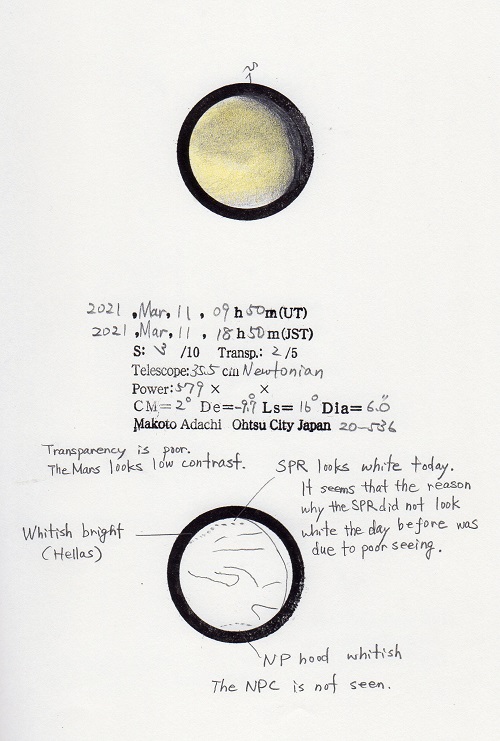 2021, Mar, 11, 09h50m(UT)
2021, Mar, 11, 18h50m(JST)
S: 3 /10 Transp.: 2 /5
Telescope: 35.5 cm Newtonian
Power: 579 × ×
CM= 2° De= -9.7° Ls= 16° Dia= 6.0"
Makoto Adachi Ohtsu City Japan 20-536
Transparency is poor.
The Mars looks low contrast.
SPR looks white today.
It seems that the reason
why the SPR did not look
white the day before was
due to poor seeing.
Whitish bright
(Hellas)
NP hood whitish
The NPC is not seen.